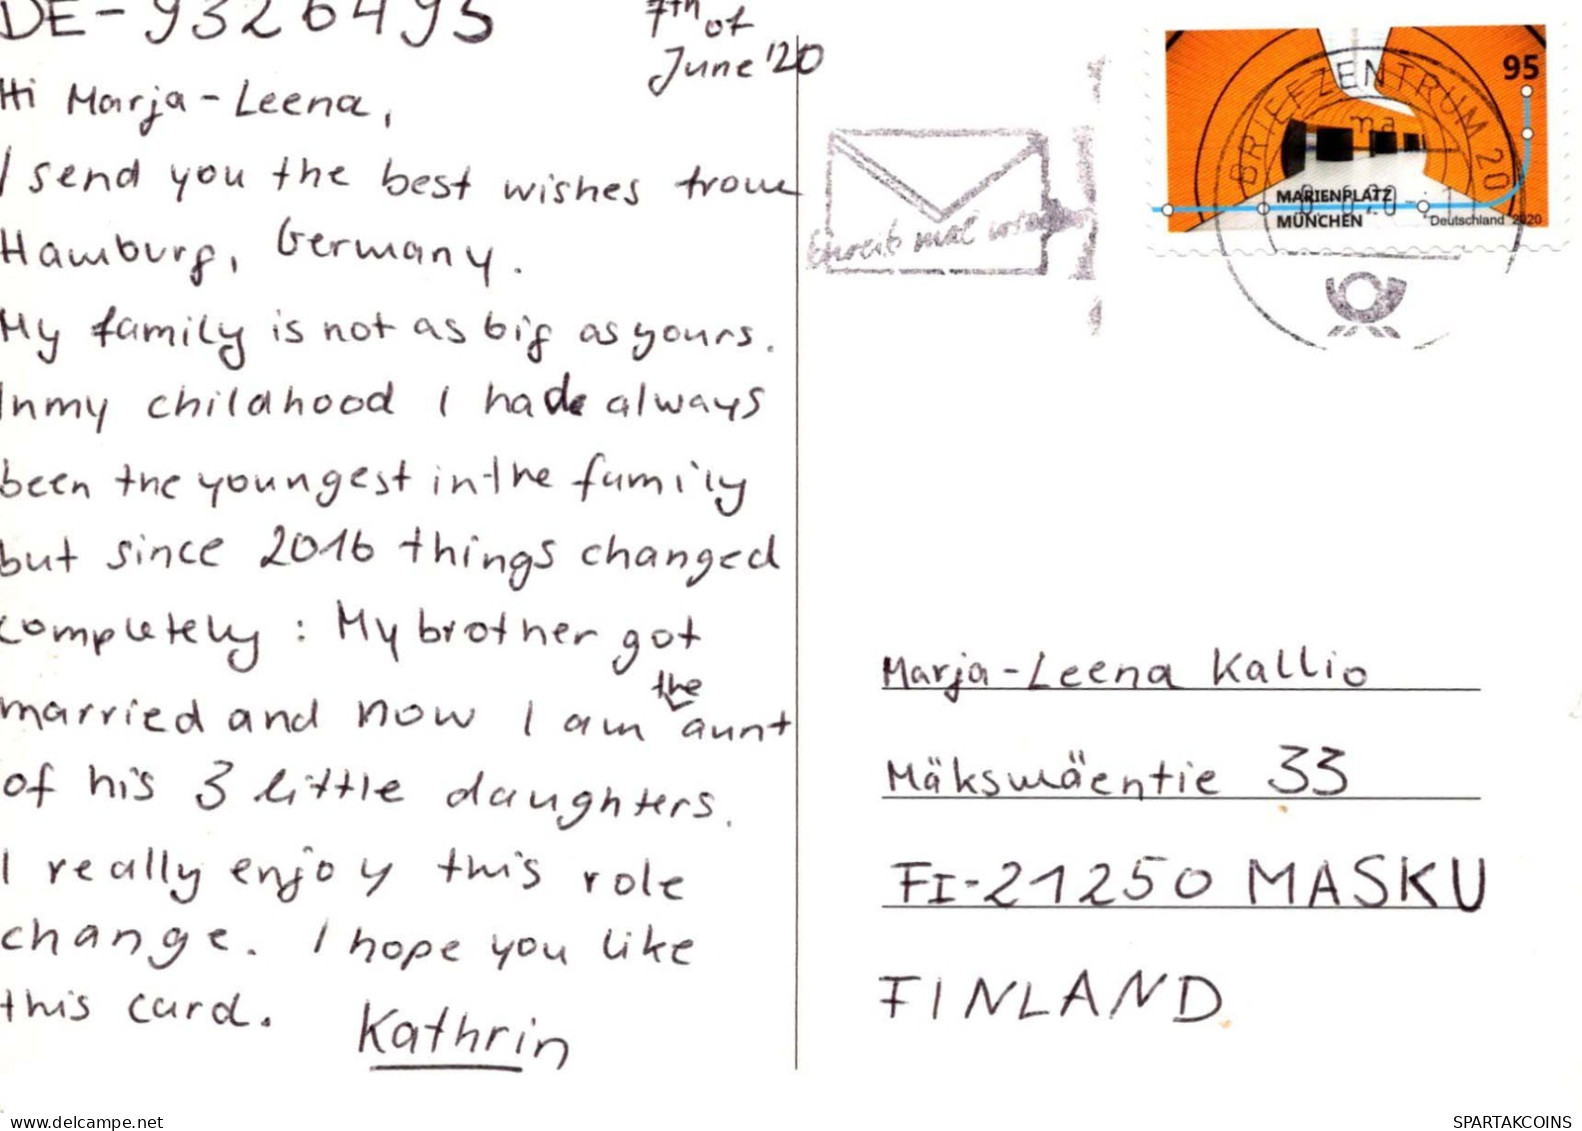 DE-9326495
7th of
June '20
Hi Marja-Leena,
I send you the best wishes from
Hamburg, Germany.
My family is not as big as yours.
In my childhood I had always
been the youngest in the family
but since 2016 things changed
completely: My brother got
married and now I am the aunt
of his 3 little daughters.
I really enjoy this role
change. I hope you like
this card.
Kathrin
Schreib mal wieder
BRIEFZENTRUM 20
ma
95
MARIENPLATZ
MÜNCHEN
Deutschland 2020
Marja-Leena Kallio
Mäksmäentie 33
FI-21250 MASKU
FINLAND
www.delcampe.net
SPARTAKCOINS